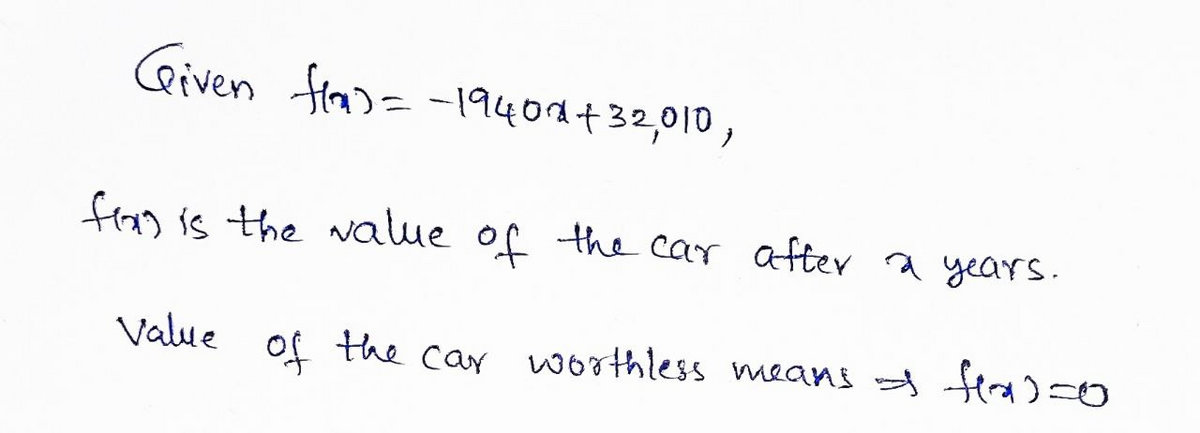 Given f(x) = -1940x + 32,010,
f(x) is the value of the car after x years.
Value of the car worthless means ⇒ f(x) = 0